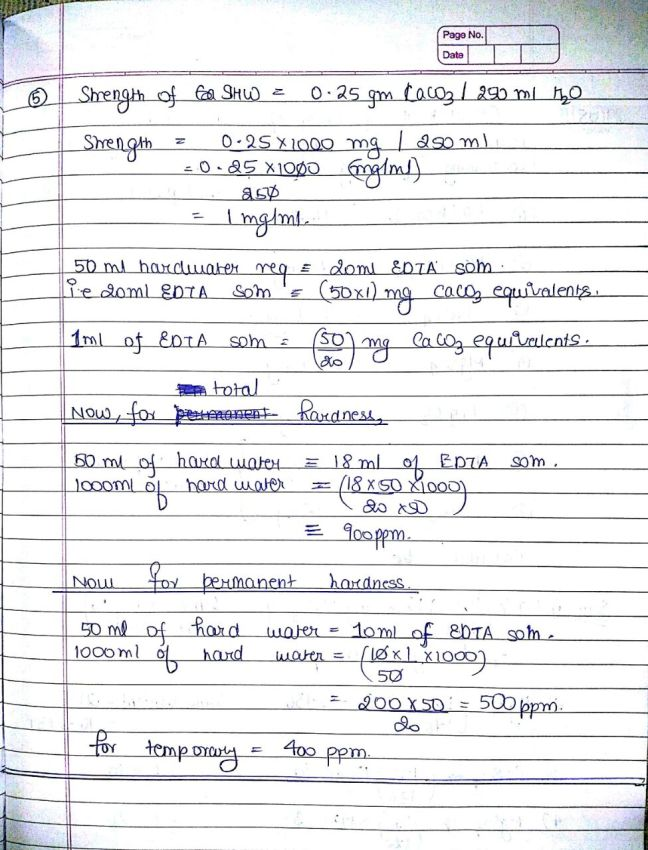 Page No.
Date
⑤ Strength of SHW = 0.25 gm CaCO3 / 250 ml H2O
Strength = 0.25 x 1000 mg / 250 ml
= 0.25 x 1000 (mg/ml)
250
= 1 mg/ml.
50 ml hardwater req ≡ 20ml EDTA soln.
i.e 20ml EDTA soln = (50x1) mg CaCO3 equivalents.
1ml of EDTA soln = (50/20) mg CaCO3 equivalents.
total
Now, for permanent hardness,
50 ml of hard water ≡ 18 ml of EDTA soln.
1000ml of hard water = (18 x 50 x 1000)
20 x 50
≡ 900ppm.
Now for permanent hardness.
50 ml of hard water = 10ml of EDTA soln.
1000ml of hard water = (10 x 1 x 1000)
50
= 200 x 50 = 500 ppm.
20
for temporary = 400 ppm.